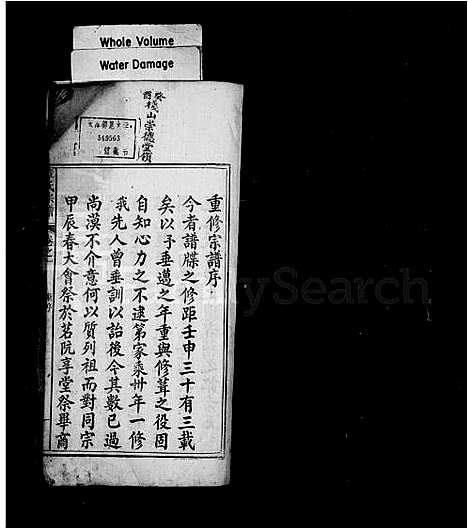 Whole Volume
Water Damage
癸酉
棧山崇德堂領
549563
重修宗譜序
今者譜牒之修距壬申三十有三載
矣以予垂邁之年重與修葺之役固
自知心力之不逮第家乘卅年一修
我先人曾垂訓以詒後今其數已過
尚漠不介意何以質列祖而對同宗
甲辰春大會祭於茗阮享堂祭畢商
氏宗譜